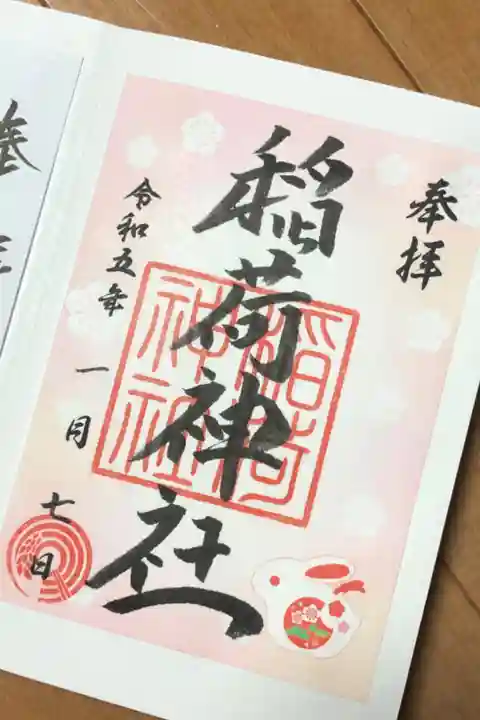 奉拝
稲荷神社
稲荷
神社
令和五年
一月
七日